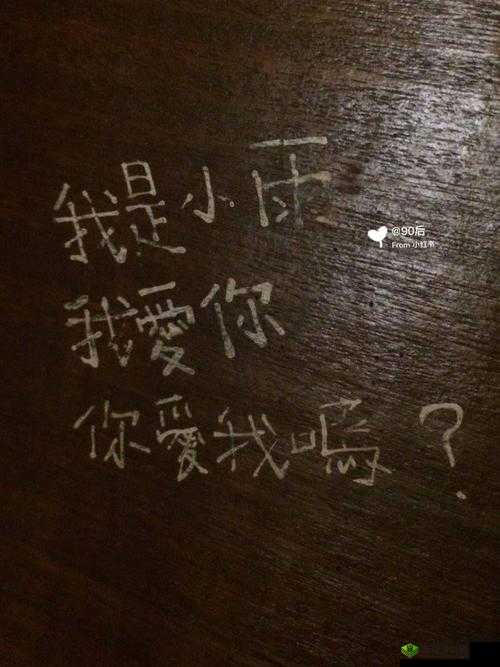 我是小雨
我愛你
你愛我嗎？
@90后
From 小红书